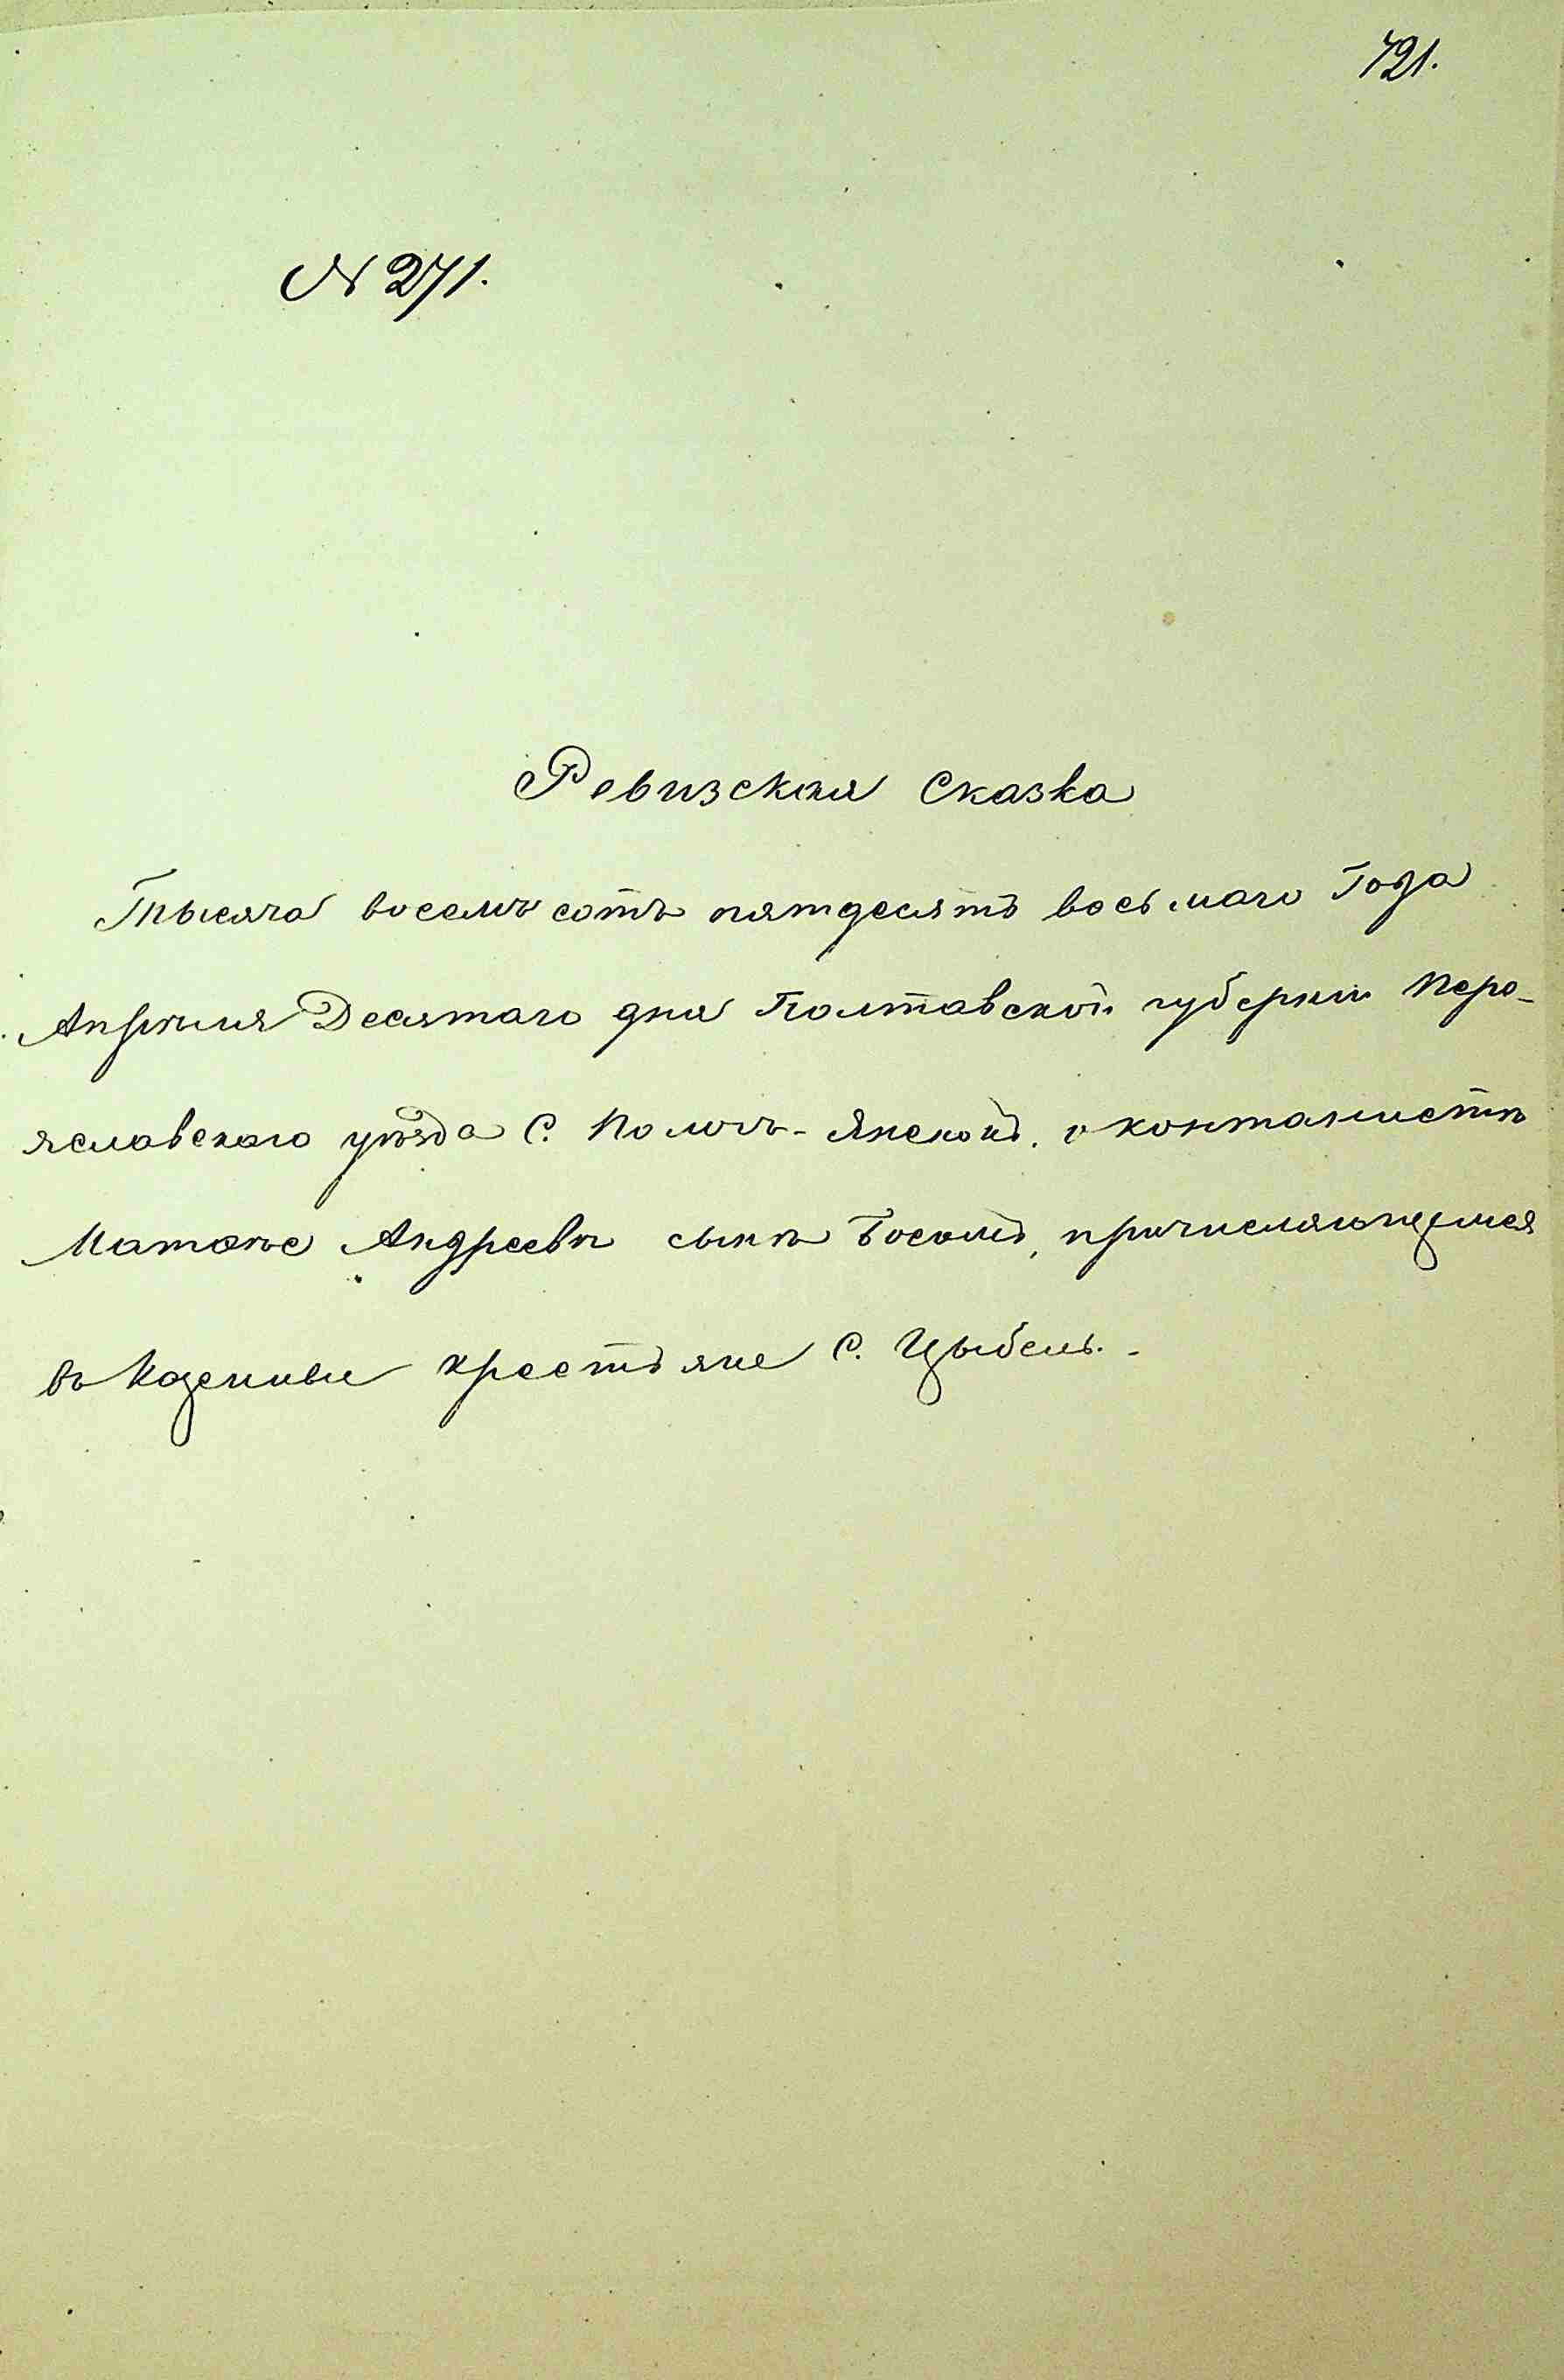 721.
N 271.
Ревизская Сказка
Тысяча восемь сотъ пятдесятъ восьмаго Года
Апрѣля Десятаго дня Полтавской губерніи Перо-
яславскаго уѣзда С. Помочь- о контонистѣ
Матвѣе Андреевѣ сынѣ Босомъ, причисляющемся
въ Козенные крестьяне С. Цыбель.-